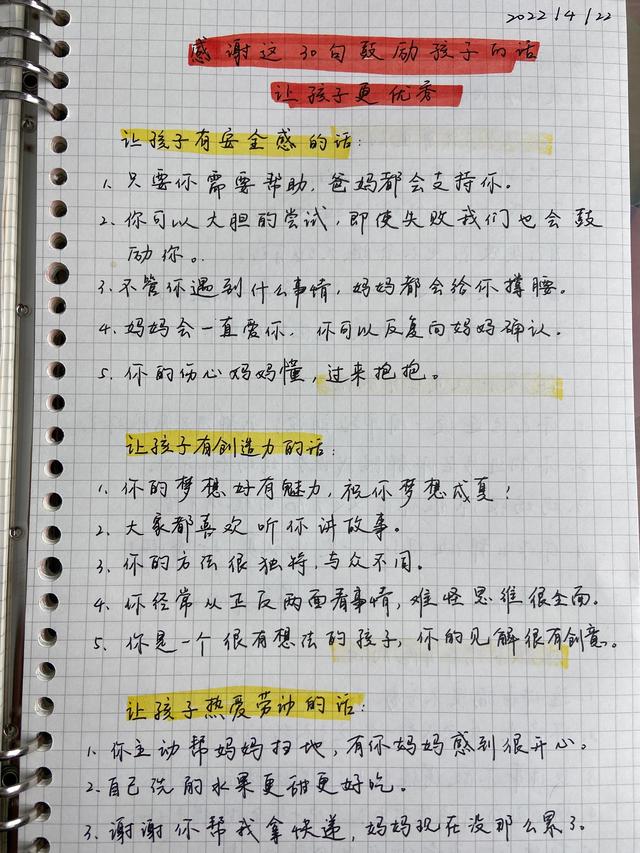 2022/4/22
感谢这30句鼓励孩子的话
让孩子更优秀
让孩子有安全感的话:
1、只要你需要帮助,爸妈都会支持你。
2、你可以大胆的尝试,即使失败我们也会鼓
励你。
3、不管你遇到什么事情,妈妈都会给你撑腰。
4、妈妈会一直爱你,你可以反复向妈妈确认。
5、你的伤心妈妈懂,过来抱抱。
让孩子有创造力的话:
1、你的梦想好有魅力,祝你梦想成真!
2、大家都喜欢听你讲故事。
3、你的方法很独特,与众不同。
4、你经常从正反两面看事情,难怪思维很全面。
5、你是一个很有想法的孩子,你的见解很有创意。
让孩子热爱劳动的话:
1、你主动帮妈妈扫地,有你妈妈感到很开心。
2、自己洗的水果更甜更好吃。
3、谢谢你帮我拿快递,妈妈现在没那么累了。